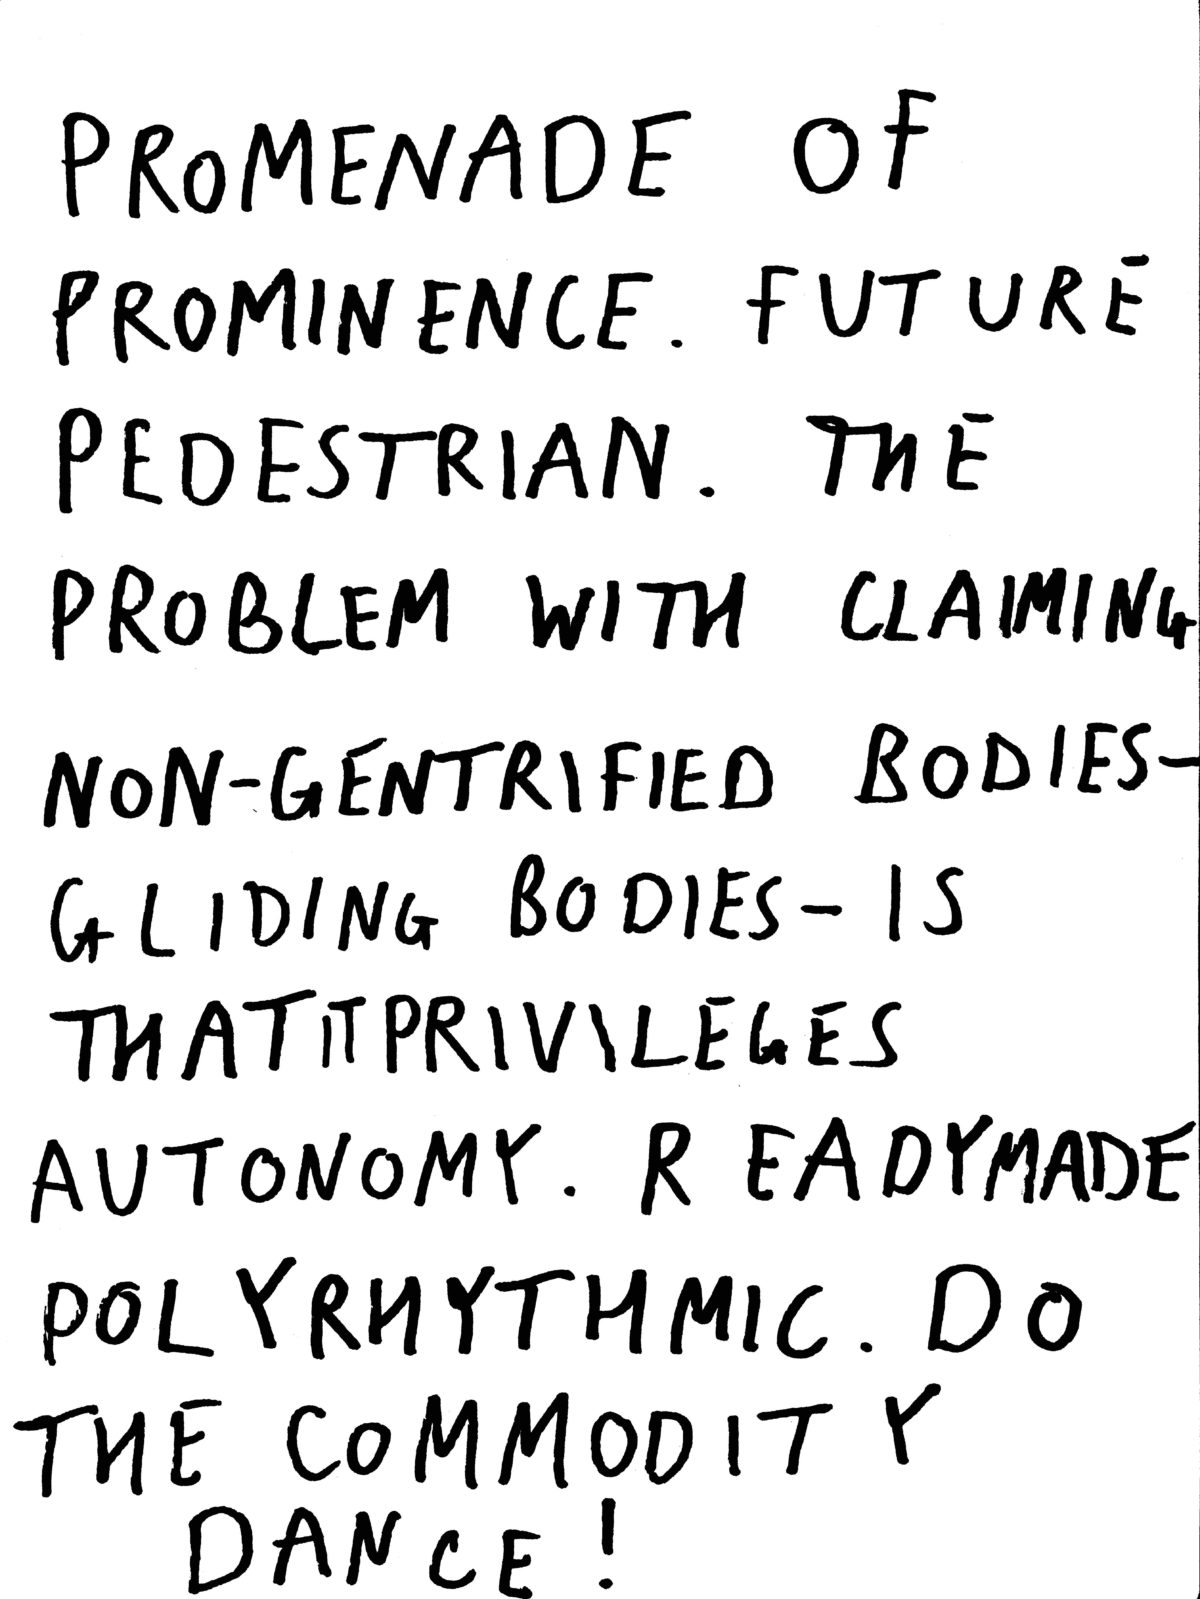 PROMENADE OF
PROMINENCE. FUTURE
PEDESTRIAN. THE
PROBLEM WITH CLAIMING
NON-GENTRIFIED BODIES-
GLIDING BODIES- IS
THAT IT PRIVILEGES
AUTONOMY. READYMADE
POLYRHYTHMIC. DO
THE COMMODITY
DANCE!